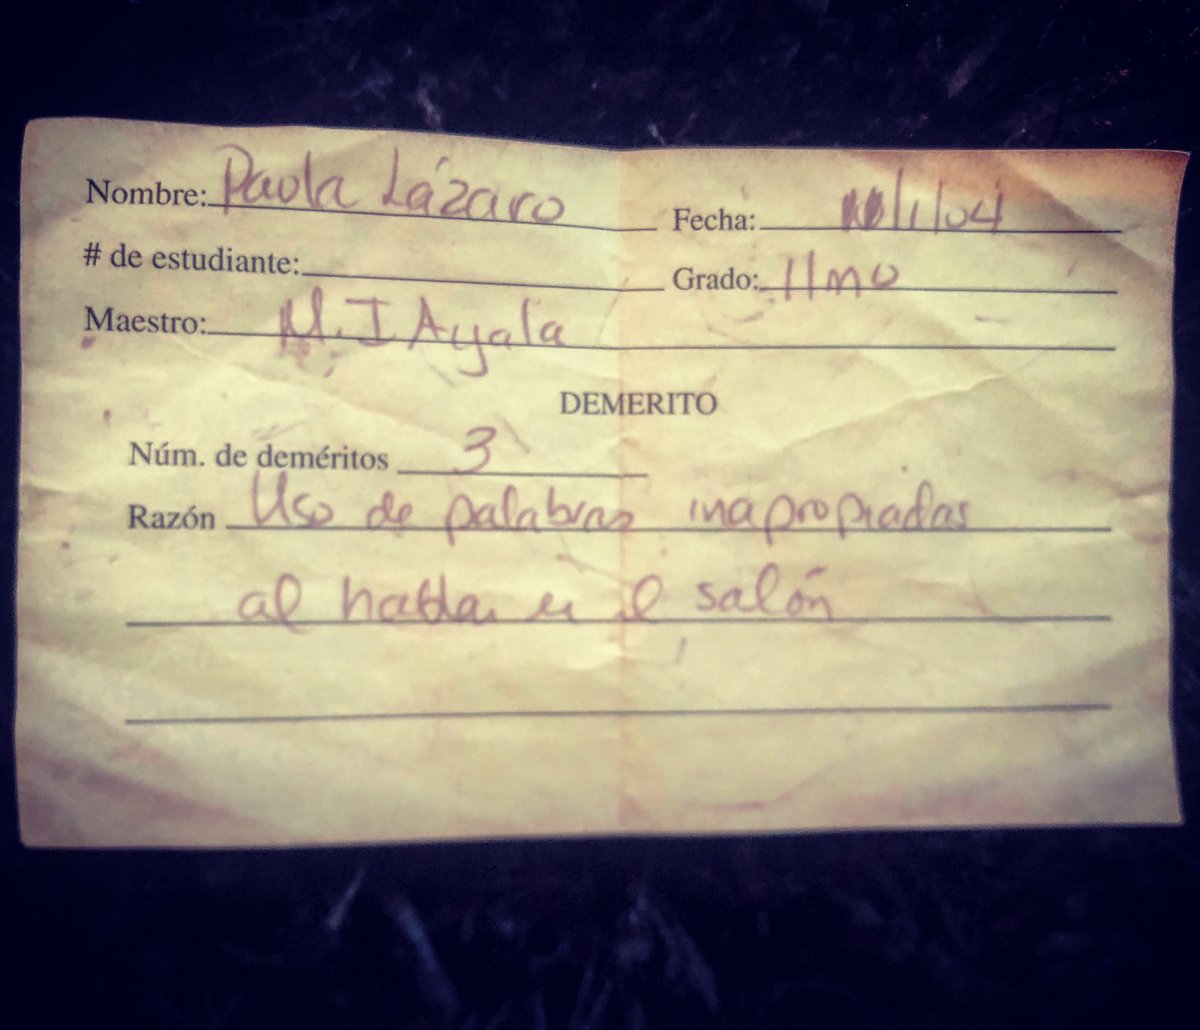 Nombre: Paola Lázaro Fecha: /1/04
# de estudiante: Grado: 11mo
Maestro: M. I Ayala
DEMERITO
Núm. de deméritos 3
Razón Uso de palabras inapropiadas
al hablar en el salón